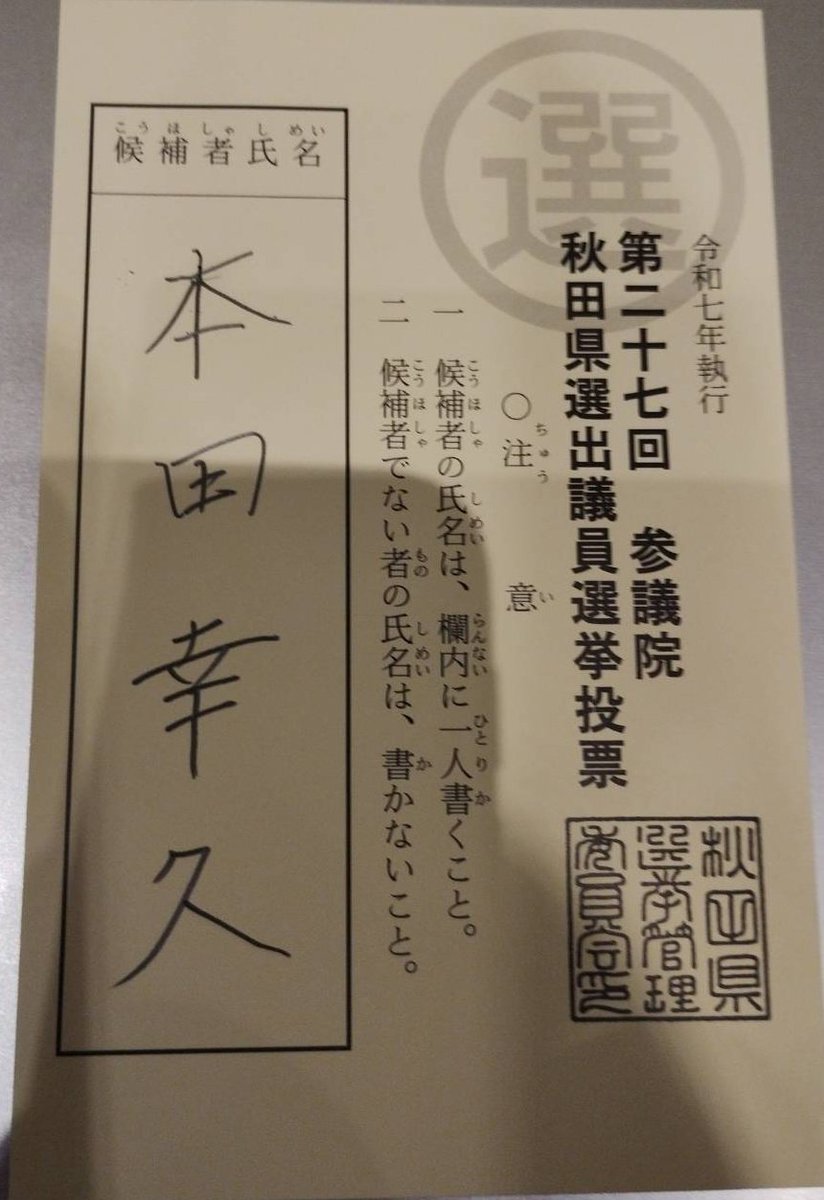 選
令和七年執行
第二十七回 参議院
秋田県選出議員選挙投票
秋田県
選挙管理
委員会印
〇注意
ちゅうい
一 候補者の氏名は、欄内に一人書くこと。
こうほしゃ しめい らんない ひとりか
二 候補者でない者の氏名は、書かないこと。
こうほしゃ もの しめい か
候補者氏名
こうほしゃしめい
本田幸久